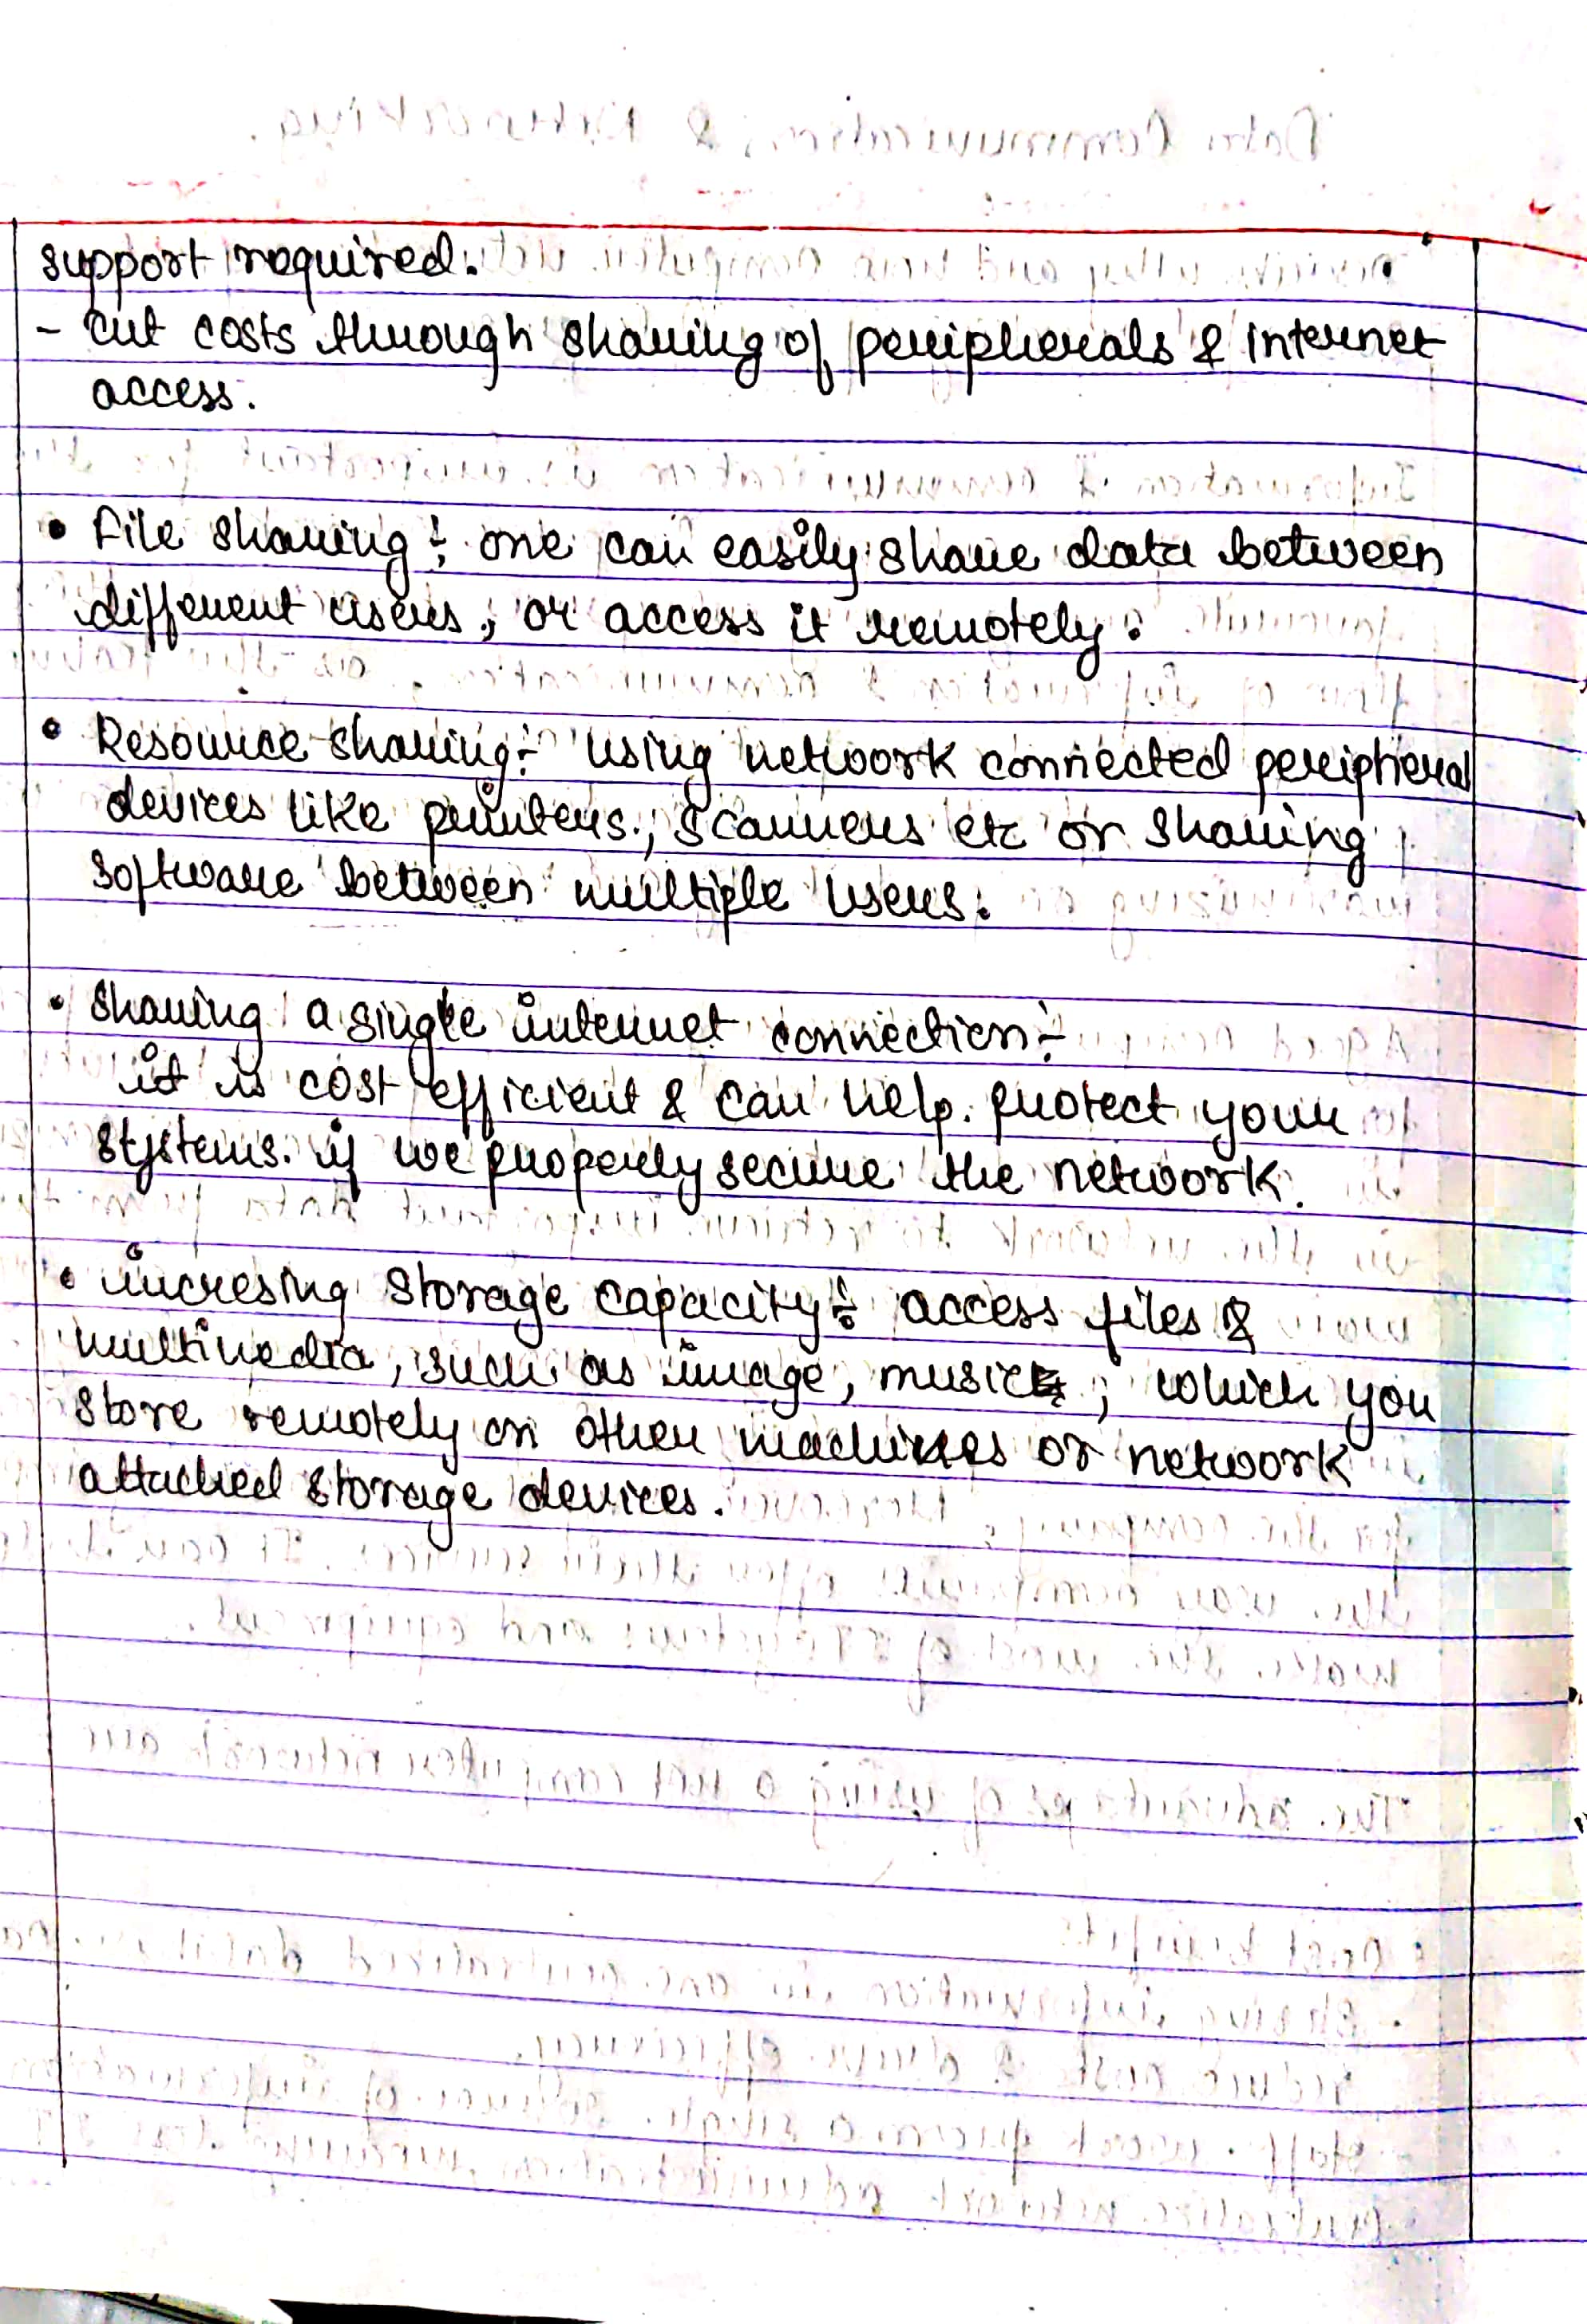 support required.
- cut costs through sharing of peripherals & internet
access.
• File sharing :- one can easily share data between
different users, or access it remotely.
• Resource sharing:- using network connected peripheral
devices like printers, scanners etc or sharing
software between multiple users.
• sharing a single internet connection:-
it is cost efficient & can help protect your
systems if we properly secure the network.
• incresing storage capacity :- access files &
multimedia, such as image, music, which you
store remotely on other machines or network
attached storage devices.